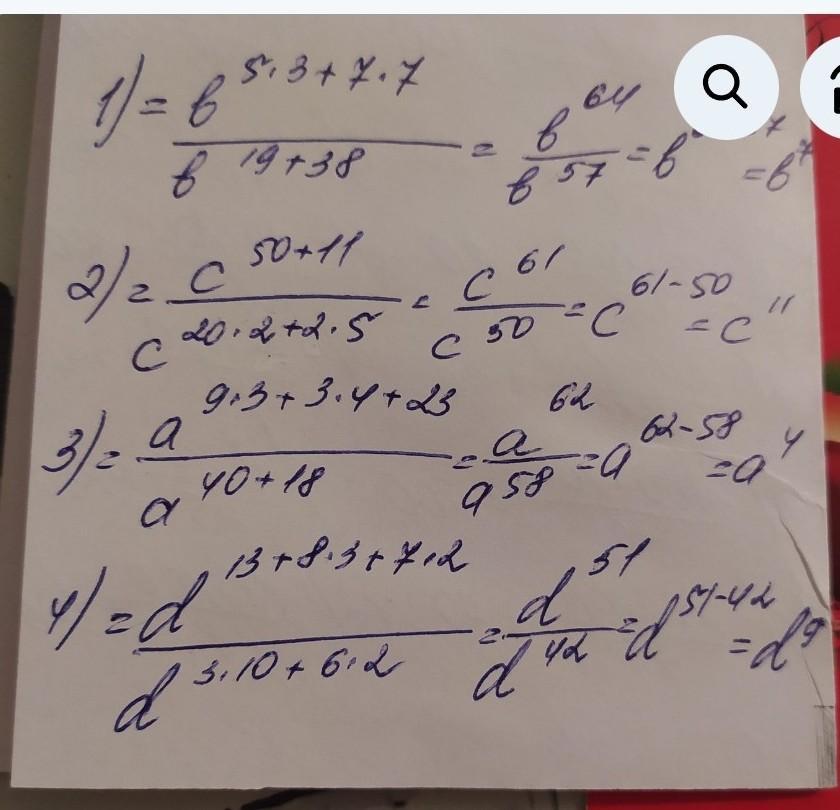 1) = b^{5·3+7·7} / b^{19+38} = b^{64} / b^{57} = b = b^7
2) = c^{50+11} / c^{20·2+2·5} = c^{61} / c^{50} = c^{61-50} = c^{11}
3) = a^{9·3+3·4+23} / a^{40+18} = a^{62} / a^{58} = a^{62-58} = a^4
4) = d^{13+8·3+7·2} / d^{3·10+6·2} = d^{51} / d^{42} = d^{51-42} = d^9